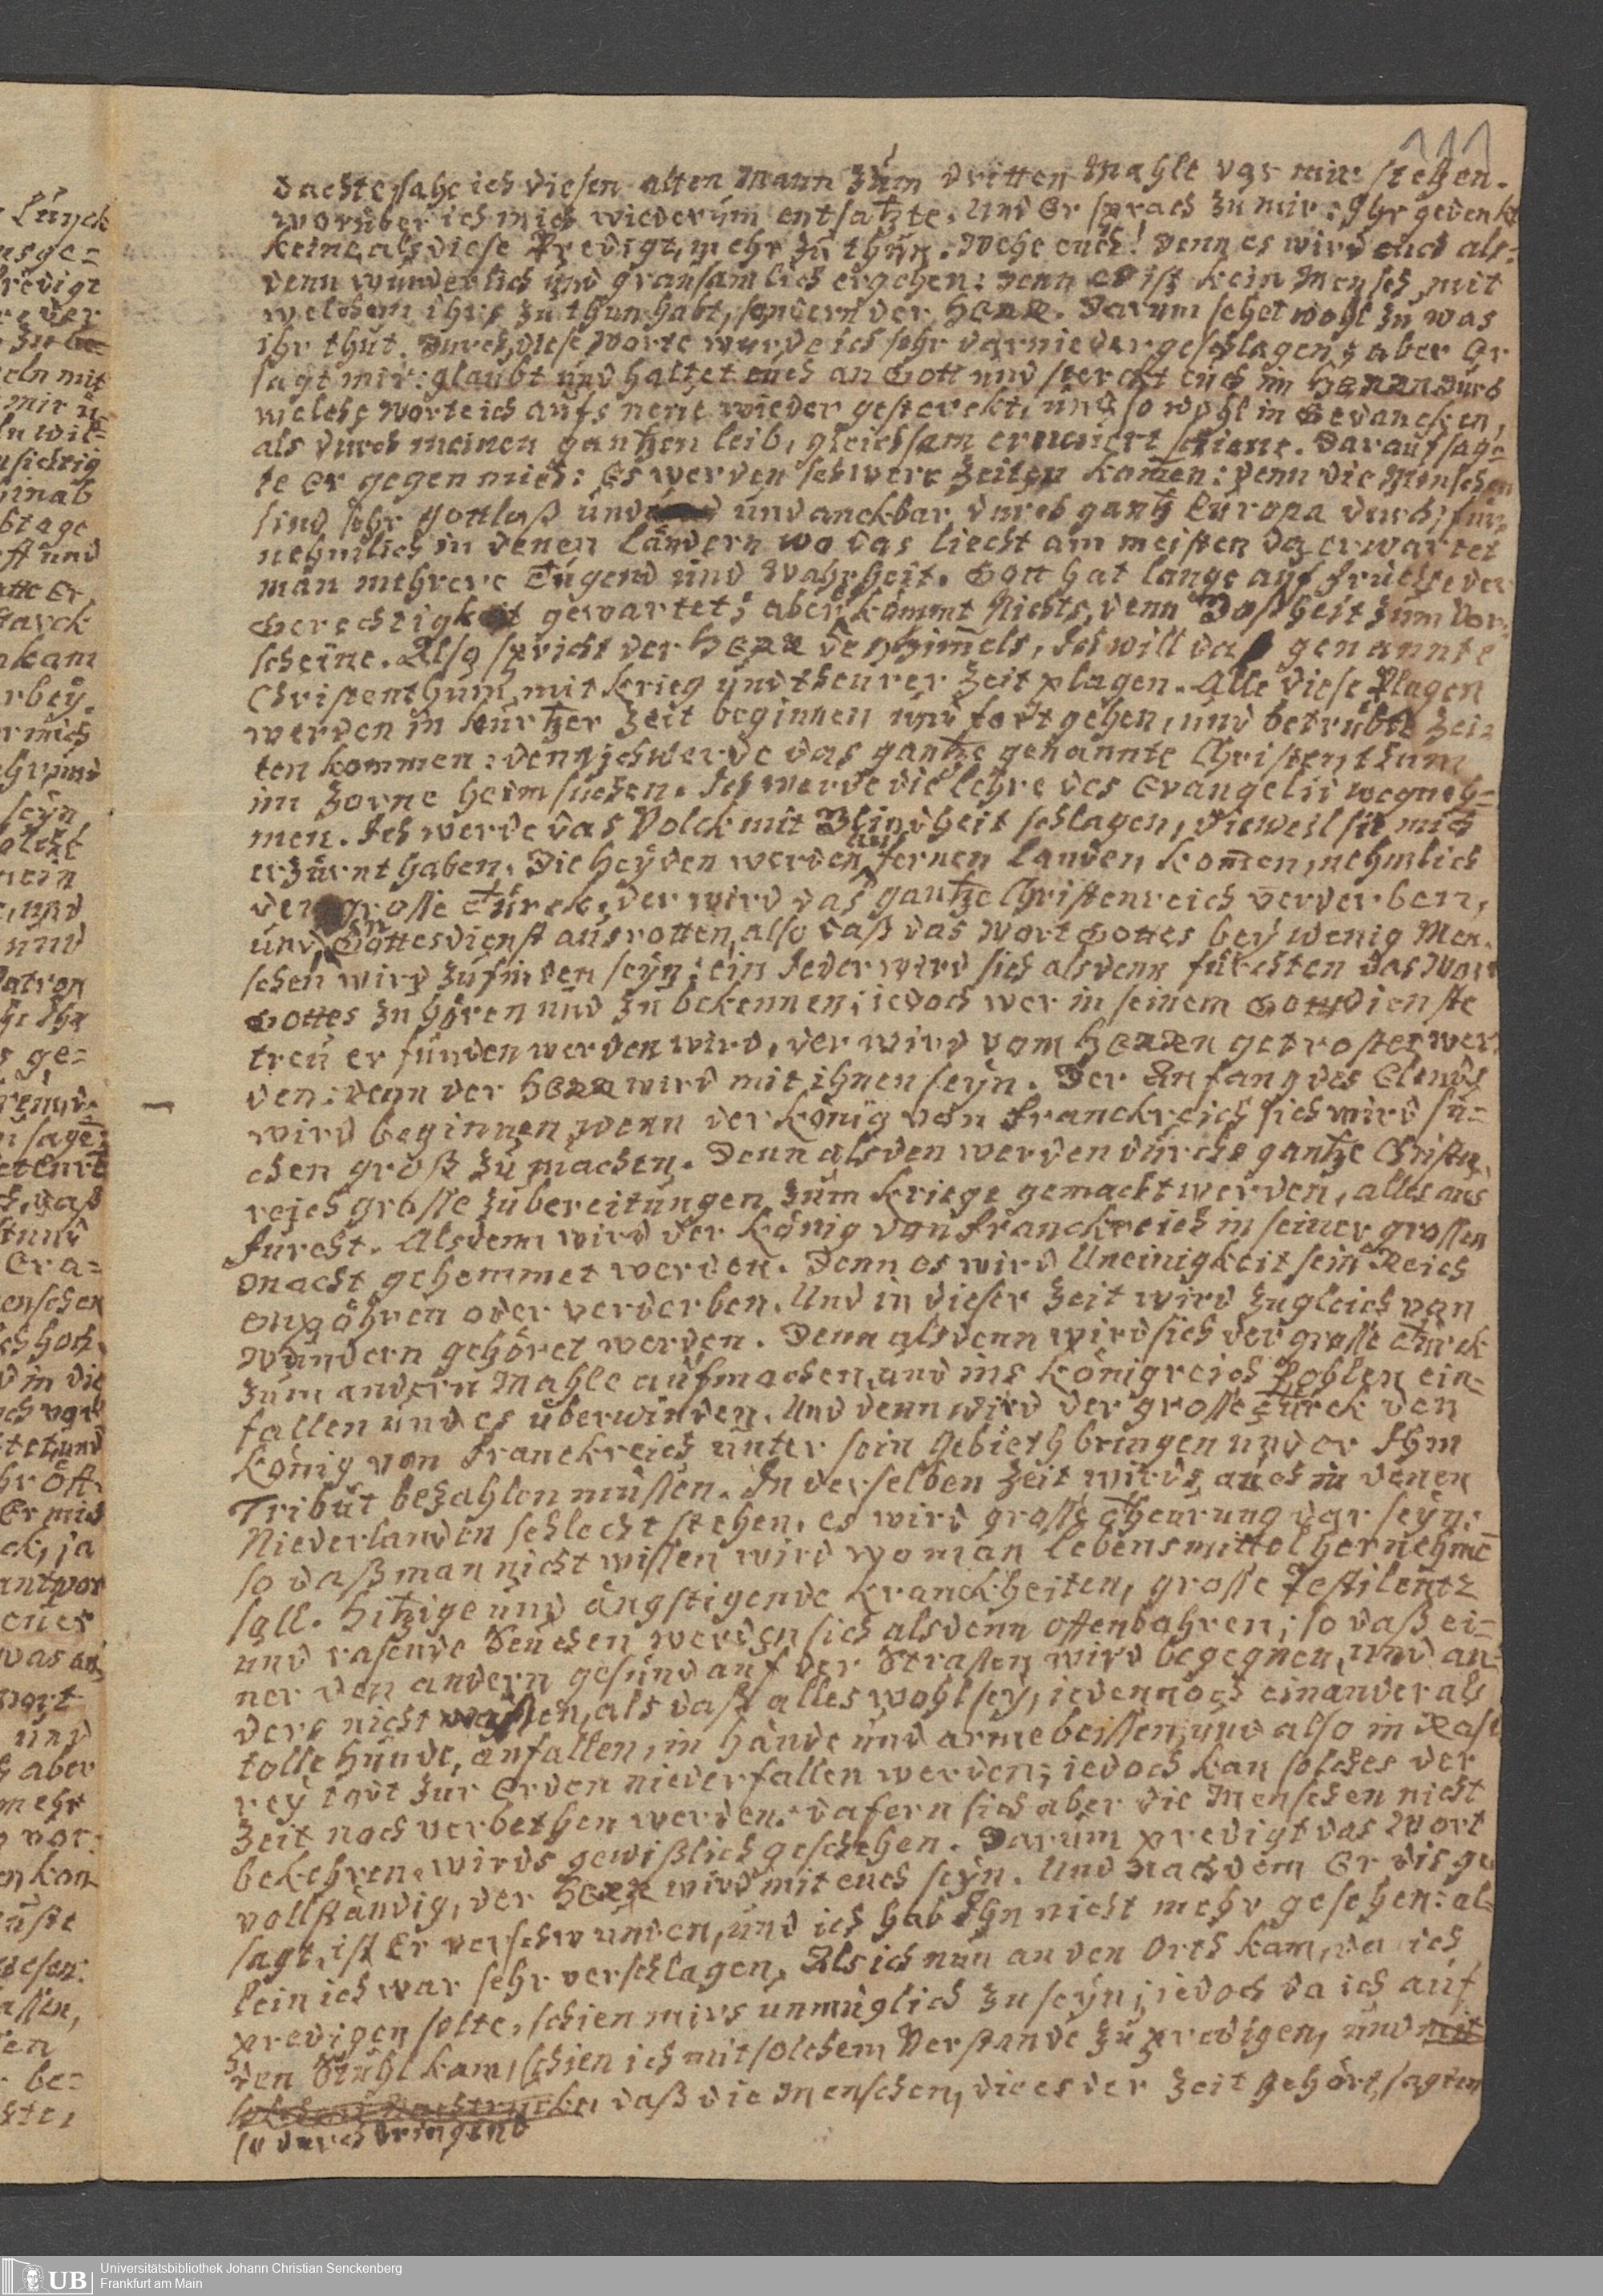 111
dachte, sahe ich diesen alten Mann zum dritten Mahle vor mir stehen.
worüber ich mich wiederum entsatzte. Und Er sprach zu mir: Ihr gedenkt
keine, als diese Predigt, mehr zu thun. Wehe euch! denn es wird euch als=
denn wunderlich und grausamlich ergehen: denn es ist kein Mensch, mit
welchem ihrs zu thun habt, sondern der HERR. Darum sehet wohl zu was
ihr thut. Durch diese Worte wurde ich sehr darnieder geschlagen; aber Er
sagt mir: glaubt und haltet euch an Gott und sterckt euch im HERRN durch
welche Worte ich aufs neue wieder gesterckt, und so wohl in Gedancken,
als durch meinen gantzen leib, gleichsam erneuert schiene. Darauf sag=
te Er gegen mich: Es werden schwere Zeiten kom̄en: denn die Menschen
sind sehr Gottlos und undanckbar durch gantz Europa durch; für=
nehmlich in denen Ländern wo das liecht am meisten da erwartet
man mehrere Tugend und Wahrheit. Gott hat lange auf früchte der
Gerechtigkeit gewartet; aber kömmt Nichts, denn Boßheit zum Vor=
scheine. Also spricht der HERR des Him̄els, Ich will das genannte
Christenthum mit krieg und theurer Zeit plagen. Alle diese Plagen
werden in kurtzer Zeit beginnen und fort gehen, und betrübte Zei=
ten kommen: denn ich werde das gantze genannte Christenthum
im Zorne heimsuchen. Ich werde die lehre des Evangelii wegneh=
men. Ich werde das Volck mit Blindheit schlagen, dieweil sie mich
erzürnt haben. Die Heyden werden aus fernen Landen kom̄en, nehmlich
der grosse Türck, der wird das gantze Christenreich verderben,
und Gottesdienst ausrotten, also daß das Wort Gottes bey wenig Men=
schen wird zu finden seyn; ein Jeder wird sich alsdenn fürchten das Wort
Gottes zu hören und zu bekennen; iedoch wer in seinem Gottsdienste
treu erfunden werden wird, der wird vom HERREN getröstet wer
den: denn der HERR wird mit ihnen seyn. Der Anfang des Elends
wird beginnen, wenn der König von Franckreich sich wird su=
chen groß zu machen. Denn alsden werden durchs gantze Christen
reich grosse zubereitungen zum Kriege gemacht werden, alles aus
Furcht. Alsdenn wird der König von Franckreich in seiner grossen
Macht gehemmet werden. Denn es wird Uneinigkeit sein Reich
empöhren oder verderben. Und in dieser Zeit wird zugleich von
Wundern gehöret werden. Denn alsdenn wird sich der grosse Türck
zum andern Mahle aufmachen, und ins Königreich Pohlen ein=
fallen und es überwinden. Und denn wird der grosse Türck den
König von Franckreich unter sein Gebieth bringen und er Ihm
Tribut bezahlen müssen. In derselben Zeit wirds auch in denen
Niederlanden schlecht stehen, es wird grosse Theurung dar seyn:
so daß man nicht wissen wird wo man lebensmittel hernehme
soll. Hitzige und ängstigende Kranckheiten, grosse Pestilentz
und rasende Seuchen werden sich alsdenn offenbahren; so daß ei=
ner den andern gesund auf der Strassen wird begegnen, und an=
ders nicht wissen, als daß alles wohl sey, iedennoch einander als
tolle hunde, anfallen, in Hände und arme beissen, und also in Rase
rey todt zur Erden niederfallen werden; iedoch kan solches der
Zeit noch verbethen werden: dafern sich aber die Menschen nicht
bekehren, wirds gewißlich geschehen. Darum predigt das Wort
vollständig, der HERR wird mit euch seyn. Und nachdem Er dis ge
sagt, ist Er verschwunden, und ich hab Ihn nicht mehr gesehen: al=
lein ich war sehr verschlagen. Als ich nun an den Orth kam, da ich
predigen solte, schien mirs unmüglich zu seyn; iedoch da ich auf
den Stuhl kam, schien ich mit solchem Verstande zu predigen, und mit
solchem Nachtrucke, daß die Menschen, die es der Zeit gehört, sagten
so durchdringend
Universitätsbibliothek Johann Christian Senckenberg
Frankfurt am Main
UB